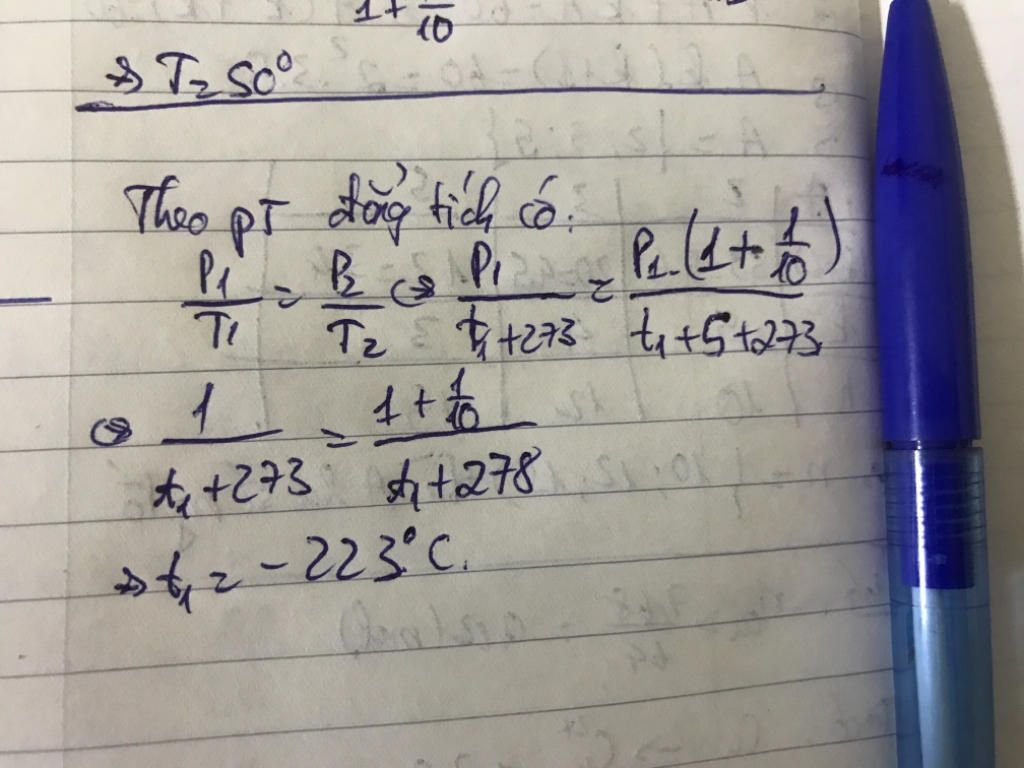 1 + 1/10
=> T = 50°
Theo pT đẳng tích có:
P1/T1 = P2/T2 <=> P1/(t1 + 273) = P1.(1 + 1/10)/(t1 + 5 + 273)
<=> 1/(t1 + 273) = (1 + 1/10)/(t1 + 278)
=> t1 = -223°C.